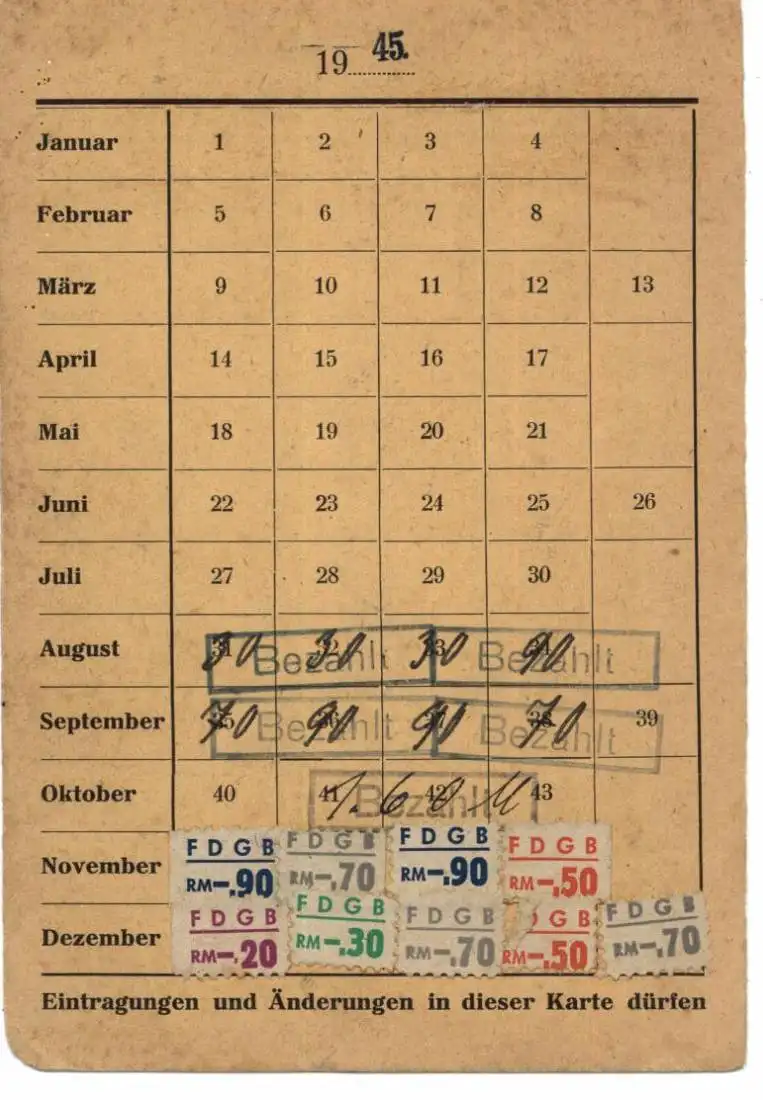 19 45.
Januar 1 2 3 4
Februar 5 6 7 8
März 9 10 11 12 13
April 14 15 16 17
Mai 18 19 20 21
Juni 22 23 24 25 26
Juli 27 28 29 30
August 30 30 30 90
Bezahlt Bezahlt
September 70 90 90 70 39
Bezahlt Bezahlt
Oktober 40 41 1.60 42 43
Bezahlt
November FDGB RM-.90 FDGB RM-.70 FDGB RM-.90 FDGB RM-.50
Dezember FDGB RM-.20 FDGB RM-.30 FDGB RM-.70 DGB RM-.50 FDGB RM-.70
Eintragungen und Änderungen in dieser Karte dürfen